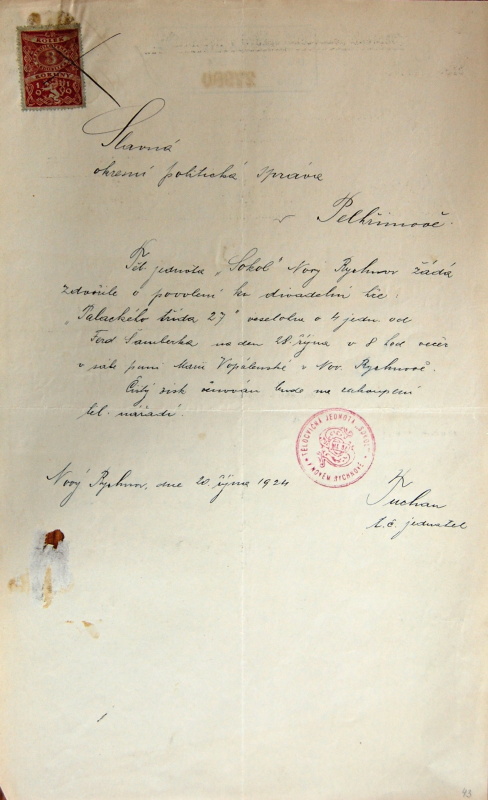 KOLEK
3
KORUNY
1919
Slavná
okresní politická správa
v Pelhřimově.
Těl. jednota „Sokol" Nový Rychnov žádá
zdvořile o povolení ku divadelní hře:
„Palackého třída 27" veselohra o 4 jedn. od
Ferd Šamberka na den 28. října v 8 hod večer
v sále paní Marie Vopálenské v Nov. Rychnově.
Čistý zisk věnován bude na zakoupení
těl. nářadí.
TĚLOCVIČNÁ JEDNOTA „SOKOL"
V NOVÉM RYCHNOVĚ
Nový Rychnov, dne 20. října 1924
Tuchan
t. č. jednatel
93